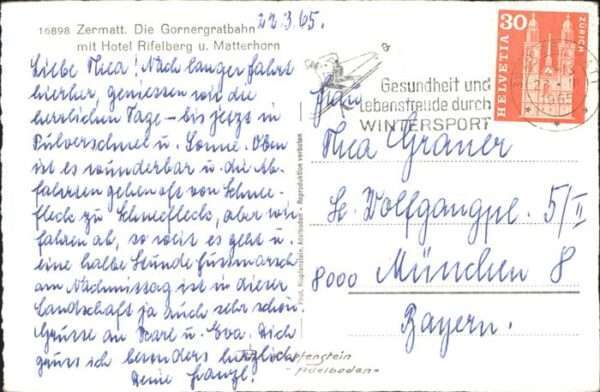 16898 Zermatt. Die Gornergratbahn
mit Hotel Rifelberg u. Matterhorn
22.3.65.
Liebe Thea! Nach langer Fahrt
hierher, geniessen wir die
herrlichen Tage – bis jetzt in
Pulverschnee u. Sonne. Oben
ist es wunderbar u. die Ab-
fahrten gehen oft von Schnee-
fleck zu Schneefleck, aber wir
fahren ab, so weit es geht u.
eine halbe Stunde Fussmarsch
am Nachmittag ist in dieser
Landschaft ja auch sehr schön.
Grüsse an u. Eva. Dich
grüss ich besonders herzlich
Deine
Phot. Klopfenstein, Adelboden - Reproduktion verboten
Klopfenstein
Adelboden
Gesundheit und
Lebensfreude durch
WINTERSPORT
HELVETIA
30
ZÜRICH
Frau
Thea Graner
St. Wolfgangpl. 5/II
8000 München 8
Bayern.